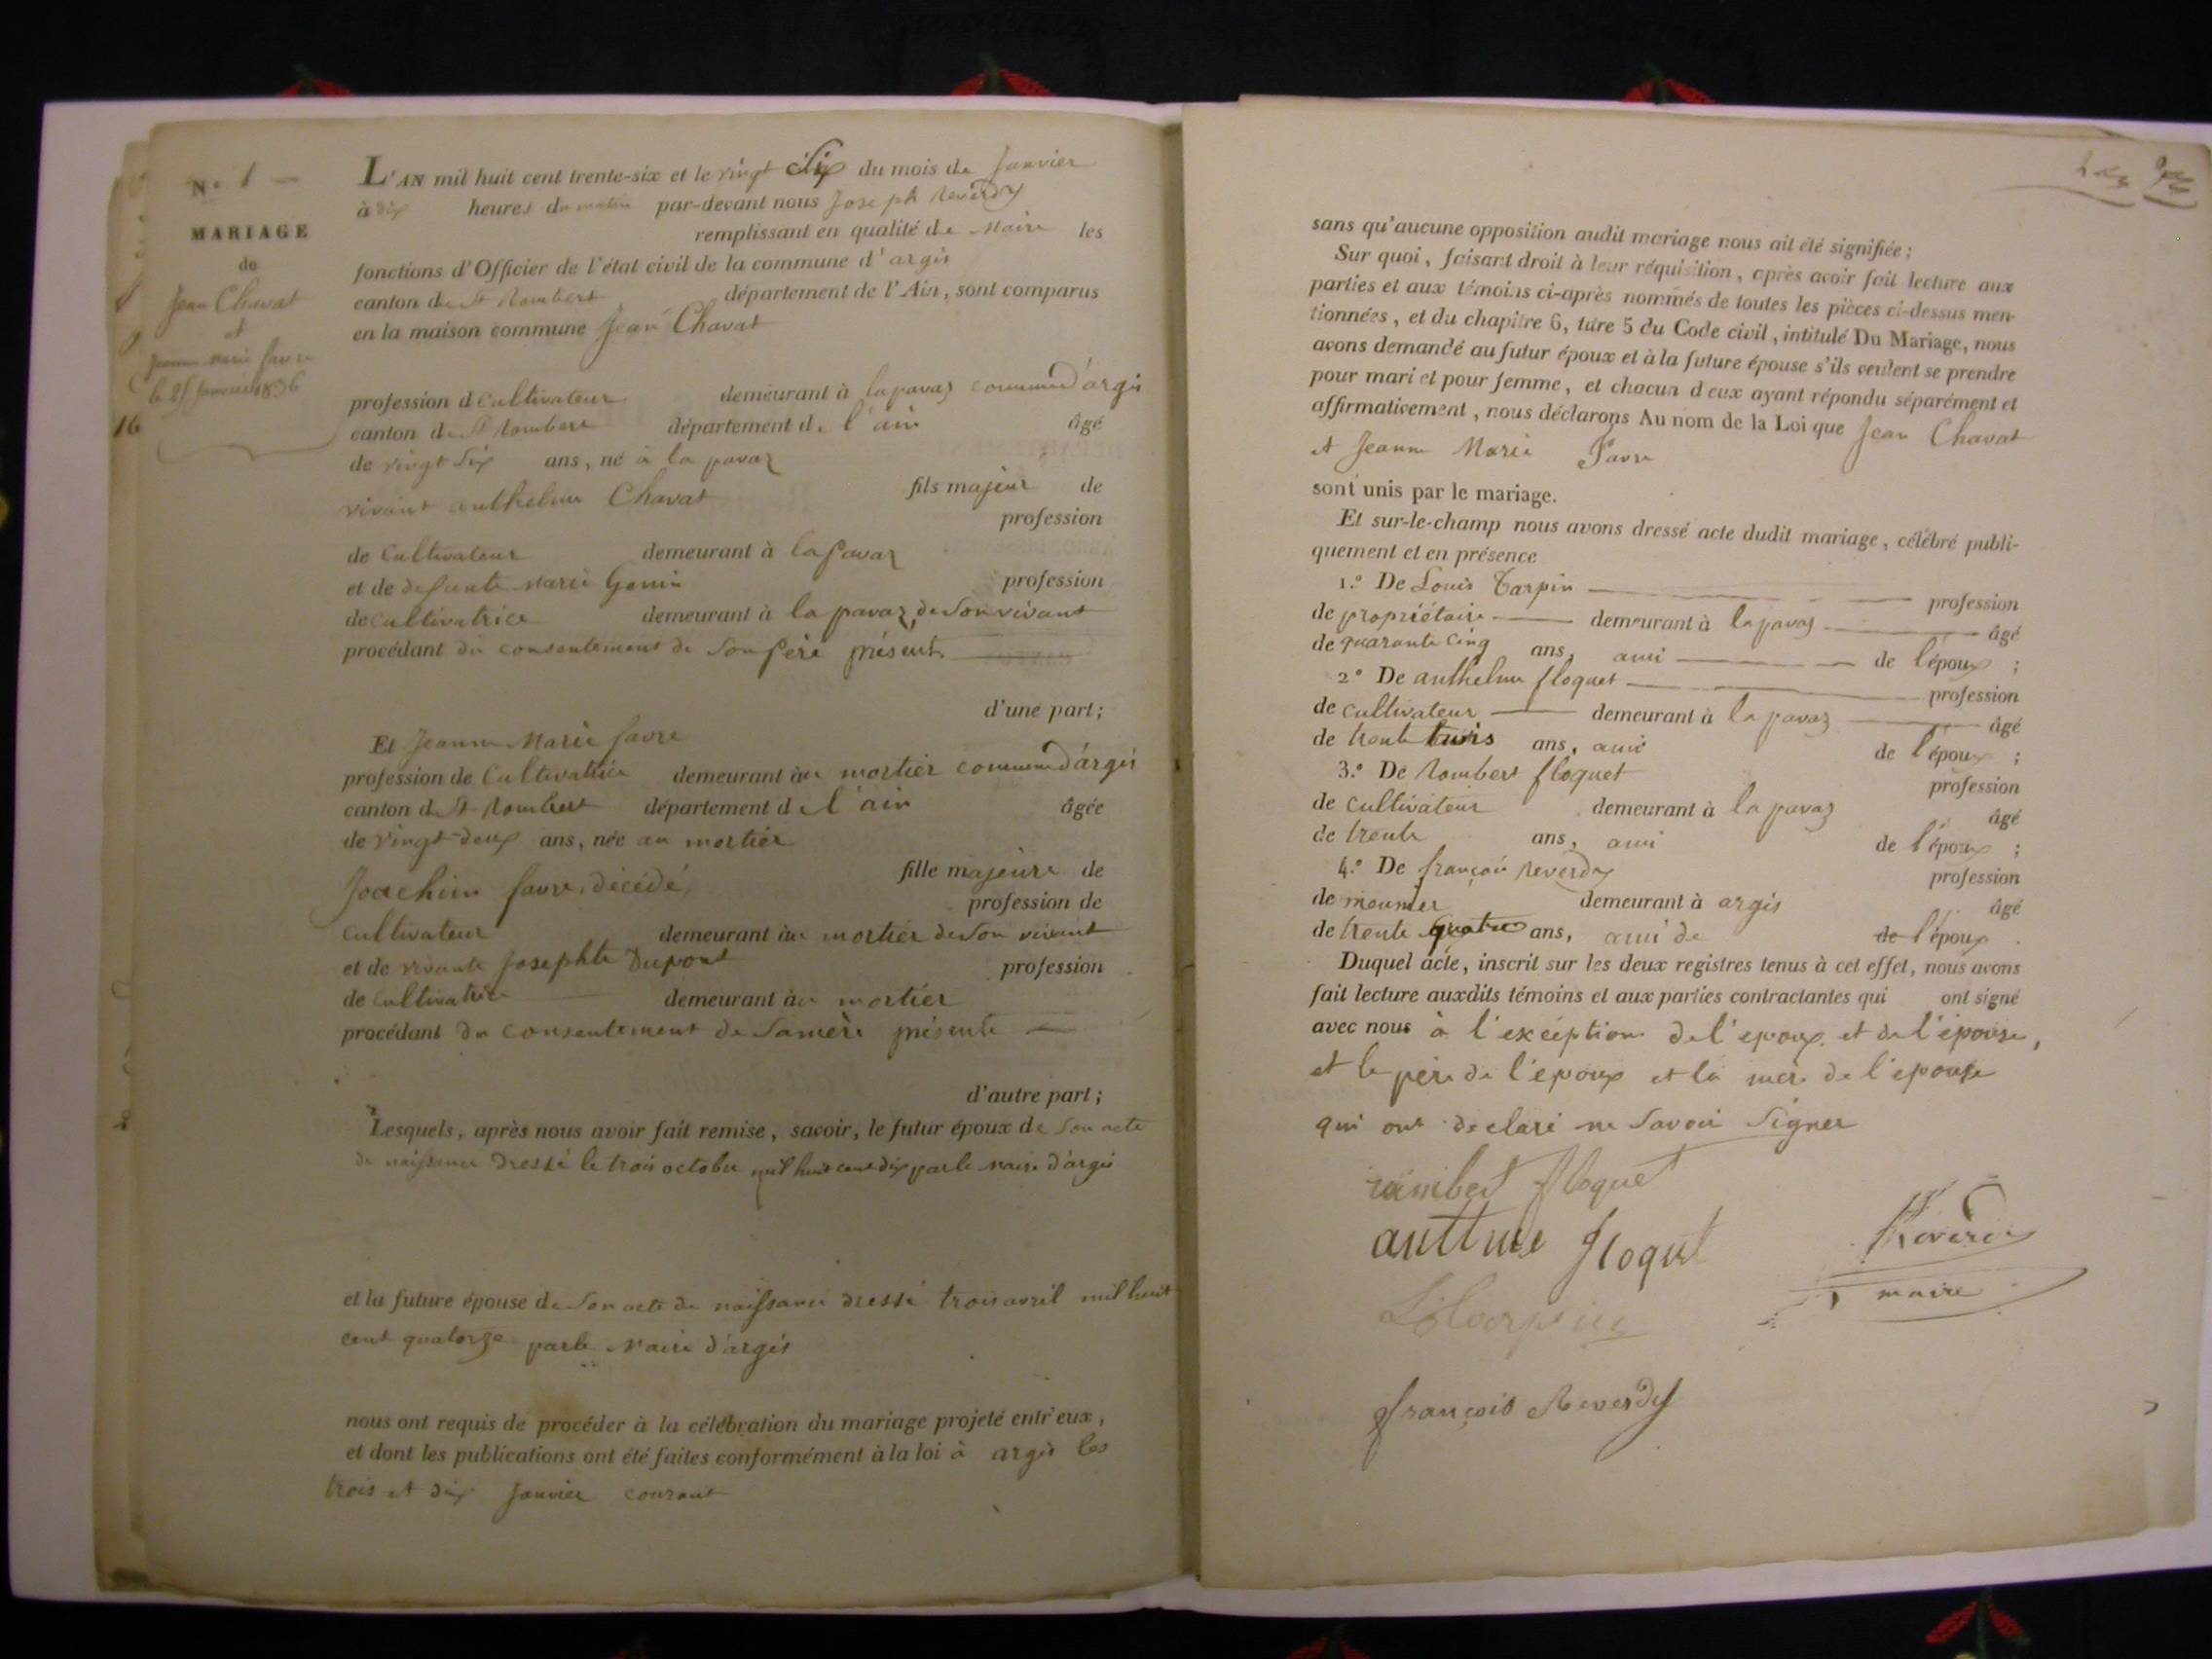 N.º 1
MARIAGE
de
Jean Chavat
et
Jeanne Marie favre
16
L'AN mil huit cent trente-six et le vingt Six du mois de Janvier
à dix heures du matin par-devant nous Joseph Reverdy
remplissant en qualité de Maire les
fonctions d'Officier de l'état civil de la commune d'argis
canton de St Rambert département de l'Ain, sont comparus
en la maison commune Jean Chavat
profession d cultivateur demeurant à lapavaz commune d'argis
canton de St Rambert département de l'ain âgé
de vingt Six ans, né à la pavaz
fils majeur de
vivant anthelme Chavat
profession
de cultivateur demeurant à lapavaz
et de defunte Marie Gonin profession
de cultivatrice demeurant à la pavaz, de son vivant
procédant du consentement de Son père présent.
d'une part;
Et Jeanne Marie favre
profession de Cultivatrice demeurant àu mortier commune d'argis
canton de St Rambert département de l'ain âgée
de vingt-deux ans, née au mortier
fille majeure de
Joachim favre, décédé,
profession de
cultivateur demeurant àu mortier de son vivant
et de vivante Josephte Dupont profession
de cultivatrice demeurant àu mortier
procédant du consentement de Samère présente
d'autre part;
Lesquels, après nous avoir fait remise, savoir, le futur époux de Son acte
de naissance dressé le trois octobre mil huit cent dix par le Maire d'argis
et la future épouse de Son acte de naissance dressé trois avril mil huit
cent quatorze par le Maire d'argis
nous ont requis de procéder à la célébration du mariage projeté entr'eux,
et dont les publications ont été faites conformément à la loi à argis les
trois et dix Janvier courant
sans qu'aucune opposition audit mariage nous ait été signifiée;
Sur quoi, faisant droit à leur réquisition, après avoir fait lecture aux
parties et aux témoins ci-après nommés de toutes les pièces ci-dessus men-
tionnées, et du chapitre 6, titre 5 du Code civil, intitulé Du Mariage, nous
avons demandé au futur époux et à la future épouse s'ils veulent se prendre
pour mari et pour femme, et chacun d'eux ayant répondu séparément et
affirmativement, nous déclarons Au nom de la Loi que Jean Chavat
et Jeanne Marie Favre
sont unis par le mariage.
Et sur-le-champ nous avons dressé acte dudit mariage, célébré publi-
quement et en présence
1.º De Louis Tarpin profession
de propriétaire demeurant à la pavaz âgé
de quarante cinq ans, ami de l'époux ;
2.º De anthelme floquet profession
de cultivateur demeurant à la pavaz âgé
de trente trois ans, ami de l'époux ;
3.º De Rambert floquet profession
de cultivateur demeurant à la pavaz âgé
de trente ans, ami de l'époux ;
4.º De françois Reverdy profession
de meunier demeurant à argis âgé
de trente quatre ans, ami de de l'époux .
Duquel acte, inscrit sur les deux registres tenus à cet effet, nous avons
fait lecture auxdits témoins et aux parties contractantes qui ont signé
avec nous à l'exception de l'epoux et de l'épouse,
et le père de l'epoux et la mère de l'epouse
qui ont declaré ne Savoir Signer
rambert floquet
Reverdy
maire
françois Reverdy